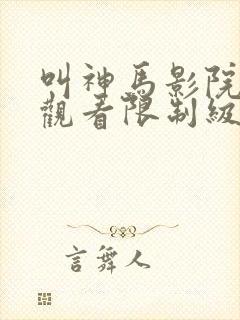 叫神馬影院
觀看限制級
言舞人